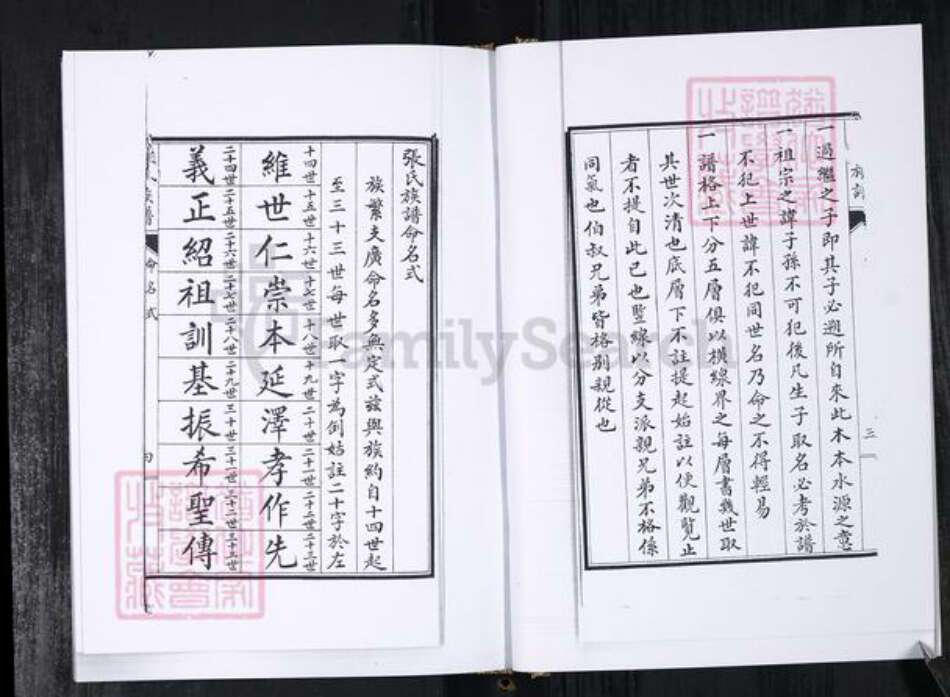 族訓
三
一過繼之子即其子必遡所自來此木本水源之意
一祖宗之諱子孫不可犯後凡生子取名必考於譜
不犯上世諱不犯同世名乃命之不得輕易
一譜格上下分五層俱以橫線界之每層書幾世取
其世次清也底層下不註提起始註以便觀覽止
者不提自此已也豎線以分支派親兄弟不格係
同氣也伯叔兄弟皆格別親從也
張氏族譜命名式
族繁支廣命名多無定式茲與族約自十四世起
至三十三世每世取一字為例姑註二十字於左
十四世 十五世 十六世 十七世 十八世 十九世 二十世 二十一世 二十二世 二十三世
維世仁崇本延澤孝作先
二十四世 二十五世 二十六世 二十七世 二十八世 二十九世 三十世 三十一世 三十二世 三十三世
義正紹祖訓基振希聖傳
族譜
命名式
FamilySearch